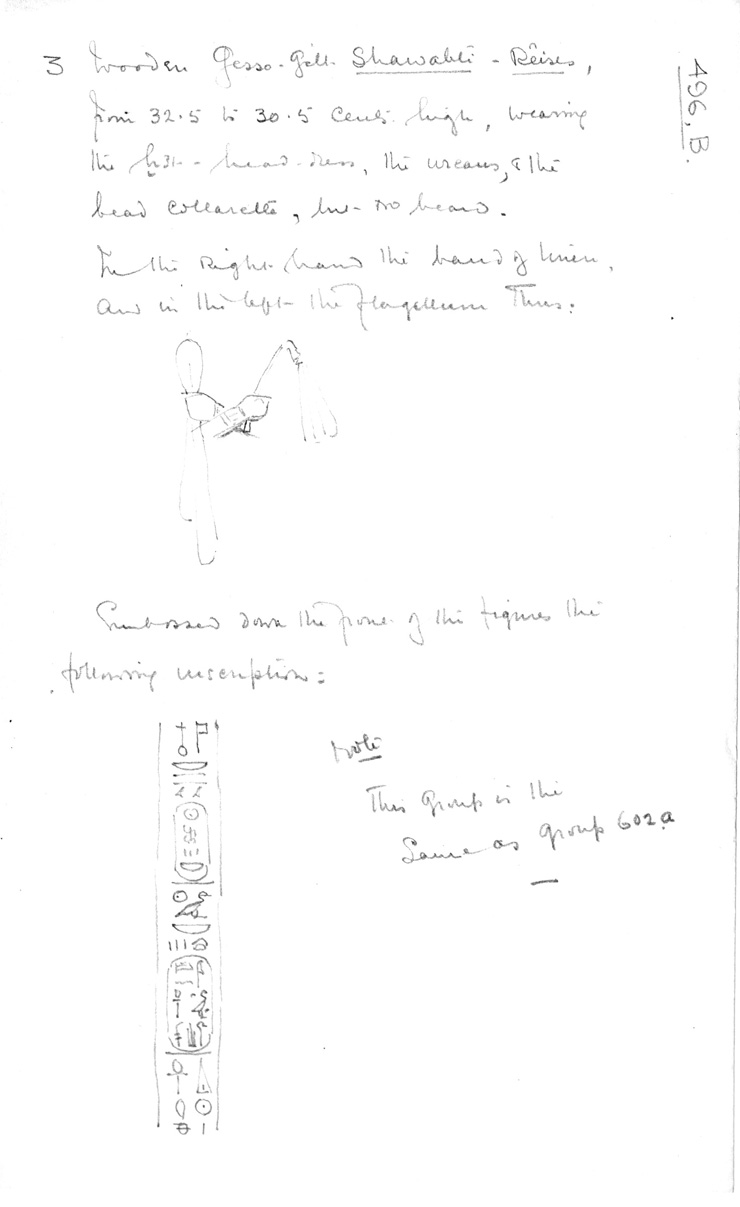 496.B.
3 Wooden Gesso-Gilt Shawabti-Rêises,
from 32.5 to 30.5 Cents. high, wearing
the head-dress, the uraeus, & the
bead collarette, but no beard.
In the Right hand the band of linen,
and in the left the flagellum Thus:
Embossed down the front of the figures the
following inscription:
Note
This Group is the
Same as group 602a